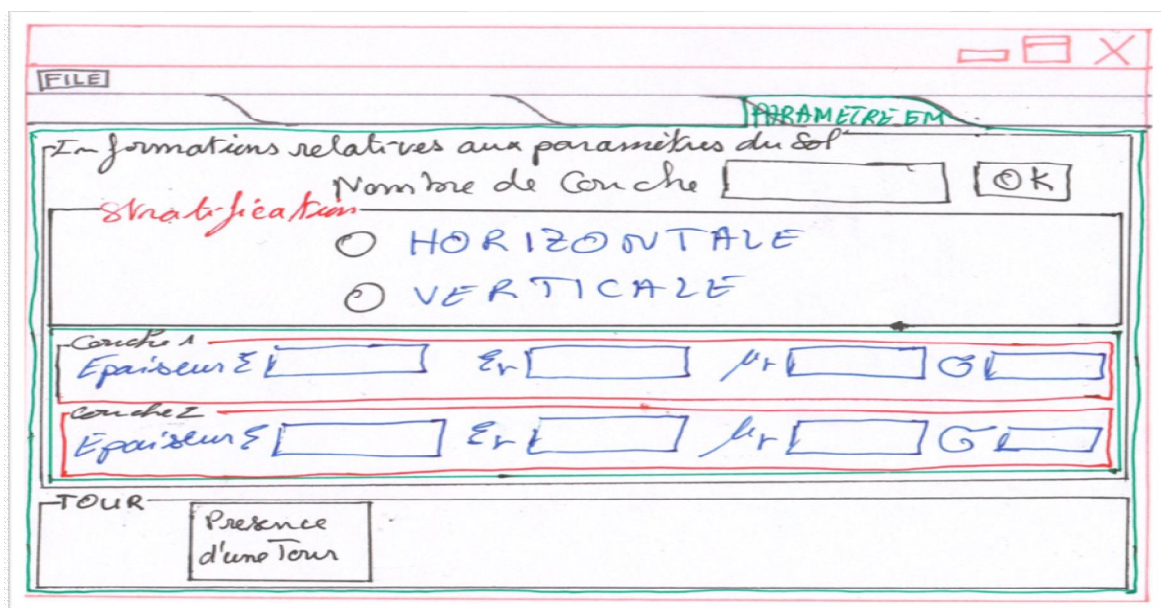 FILE
PARAMETRE EM
Informations relatives aux paramètres du Sol
Nombre de Couche OK
Stratification
HORIZONTALE
VERTICALE
Couche 1
Epaisseur ξ εr μr σ
Couche 2
Epaisseur ξ εr μr σ
TOUR
Presence
d'une Tour